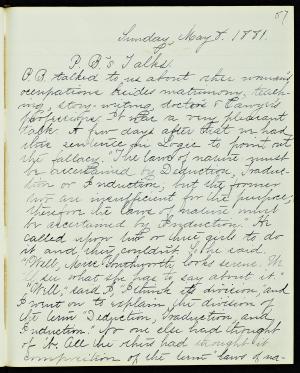 67
Sunday, May 8. 1881.
P. B.'s Talks.
P.B. talked to us about other woman's
occupations besides matrimony, teach-
ing, story-writing, doctor's & lawyer's
professions. It was a very pleasant
talk. A few days after that we had
this sentence in Logic to point out
the fallacy. "The laws of nature must
be ascertained by Deduction, Traduc-
tion or Induction; but the former
two are insufficient for the purpose;
therefore the laws of nature must
be ascertained by Induction." He
called upon two or three girls to do
it and they couldn't. He said
"Well, Miss Southworth looks serene. We'll
see what she has to say about it."
"Well," said I, "I think its division," and
I went on to explain the division of
the term "Deduction, Traduction, and
Induction." No one else had thought
of it. All the others had thought it
composition of the term "laws of na-